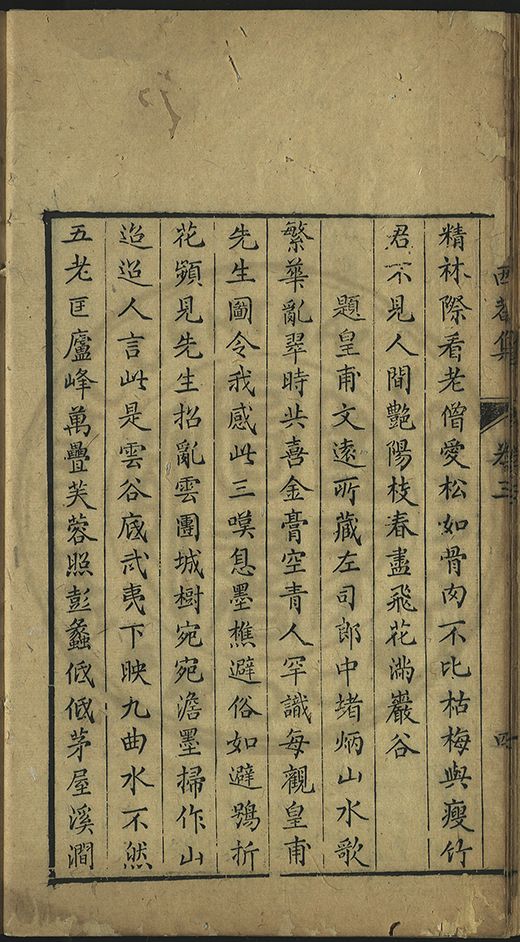 西巷集 卷三 四
精林際看老僧愛松如骨肉不比枯梅與瘦竹
君不見人間艷陽枝春盡飛花滿巖谷
題皇甫文遠所藏左司郎中堵炳山水歌
繁華亂翠時共喜金膏空青人罕識每觀皇甫
先生圖令我感此三嘆息墨樵避俗如避鴞折
花顭見先生招亂雲團城樹宛宛澹墨掃作山
迢迢人言此是雲谷底武夷下映九曲水不然
五老匡廬峰萬疊芙蓉照彭蠡低低茅屋溪澗